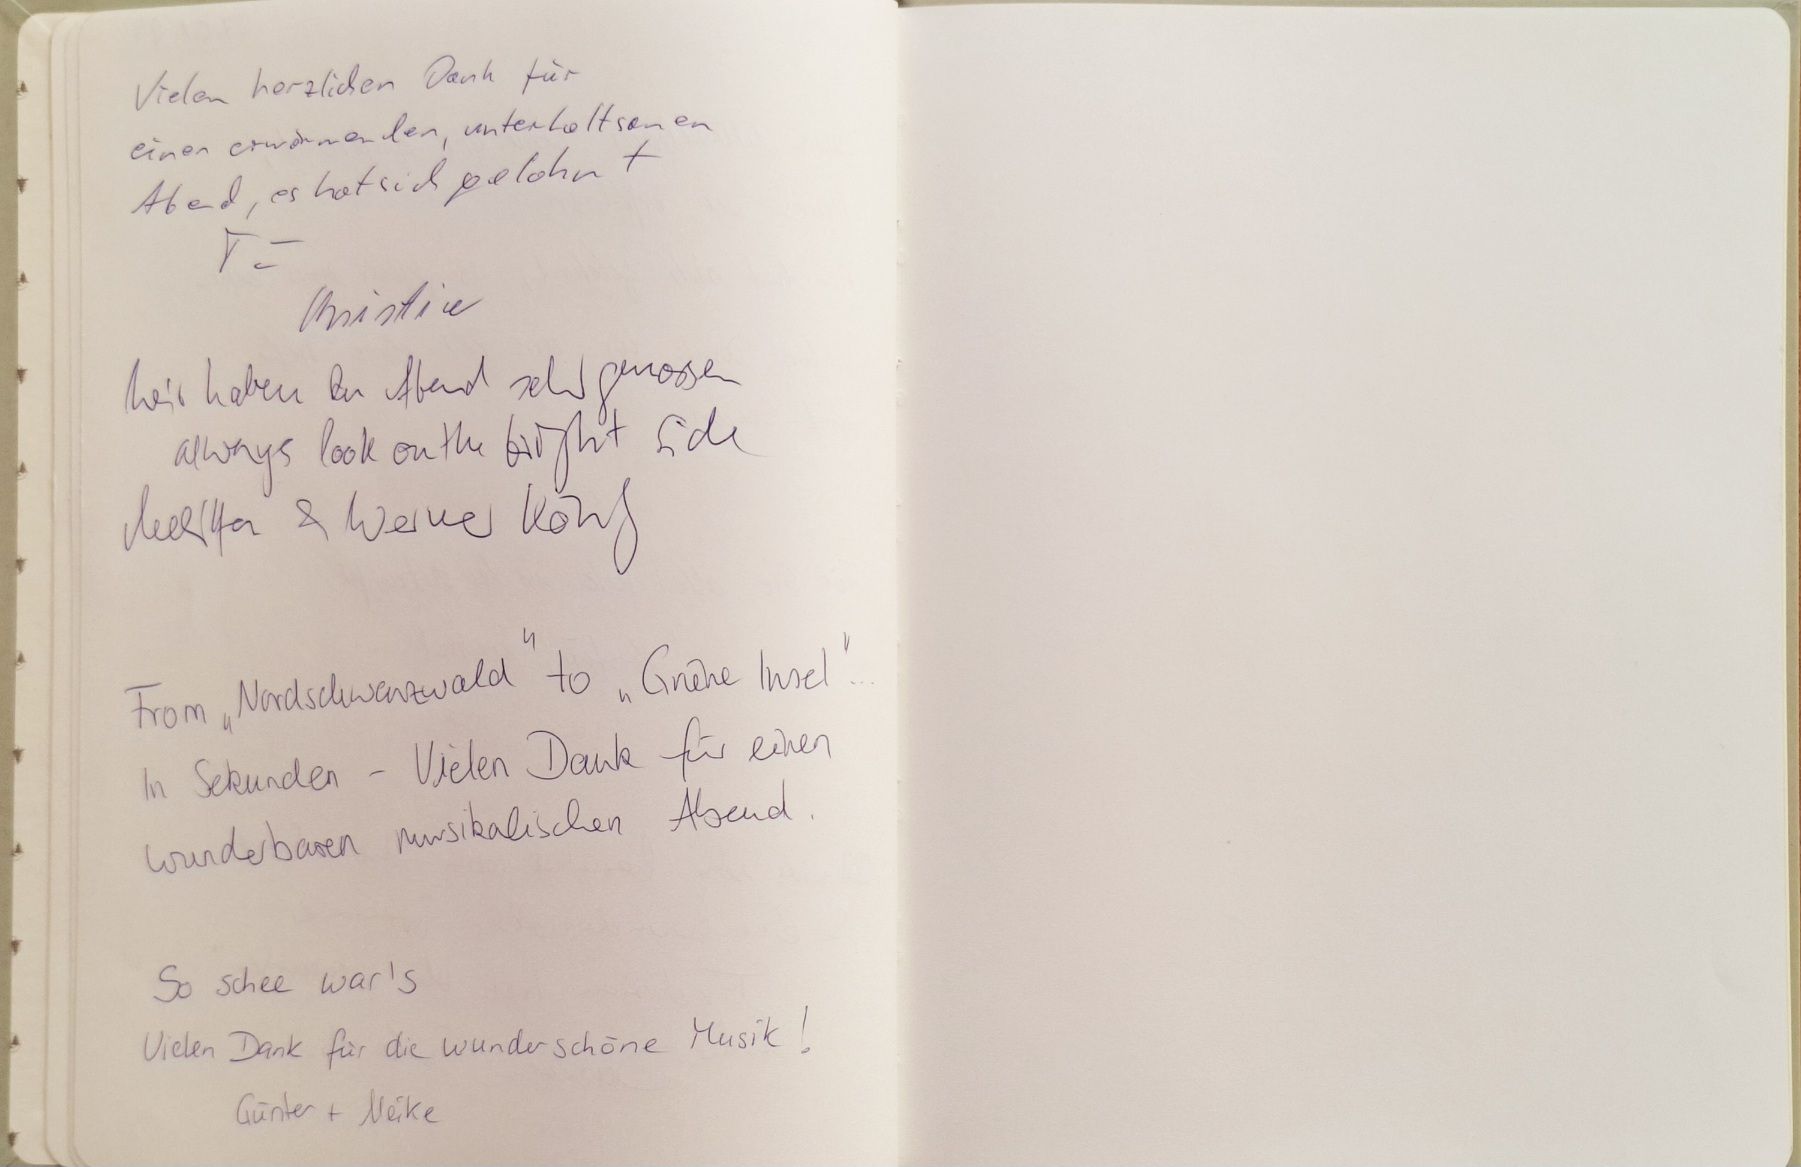 Vielen herzlichen Dank für
einen erwärmenden, unterhaltsamen
Abend, es hat sich gelohnt
Christine
Wir haben den Abend sehr genossen
always look on the bright side
& Werner König
From „Nordschwarzwald" to „Grüne Insel"...
In Sekunden - Vielen Dank für einen
wunderbaren musikalischen Abend.
So schee war's
Vielen Dank für die wunderschöne Musik!
Günter +